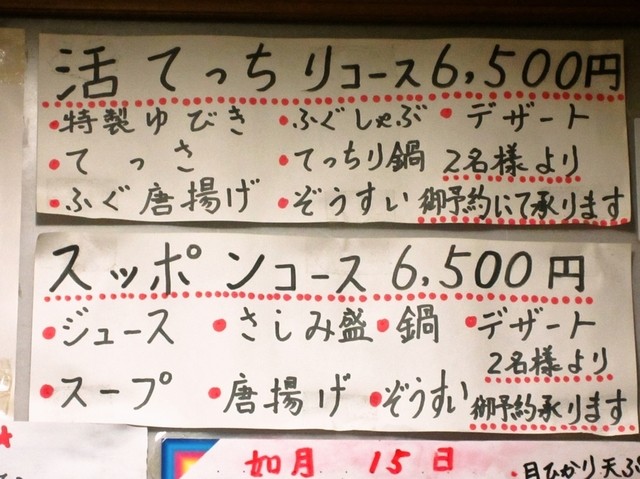 活てっちりコース6,500円
・特製ゆびき ・ふぐしゃぶ ・デザート
・てっさ ・てっちり鍋 2名様より
・ふぐ唐揚げ ・ぞうすい 御予約にて承ります
スッポンコース 6,500円
・ジュース ・さしみ盛 ・鍋 ・デザート
2名様より
・スープ ・唐揚げ ・ぞうすい 御予約承ります
如月 15日
・目ひかり天ぷ